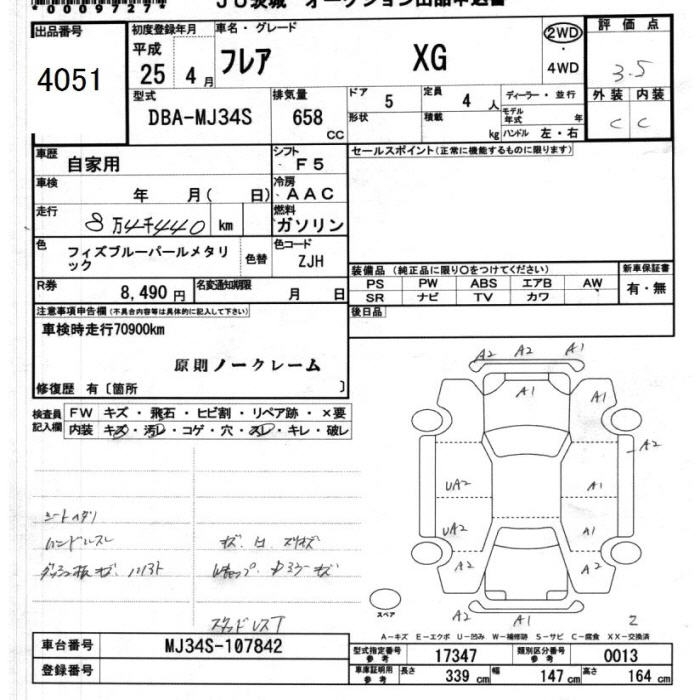 *00097277*
JU茨城 オークション出品申込書
出品番号
4051
初度登録年月
平成
25年4月
車名・グレード
フレア XG
2WD
・
4WD
評価点
3.5
外装 内装
C C
型式
DBA-MJ34S
排気量
658
CC
ドア 5
定員 4 人
ディーラー・並行
形状
積載 kg
モデル年式 年
ハンドル 左・右
車歴
自家用
シフト
F5
車検
年 月( 日)
冷房
AAC
走行
8万4千440 km
燃料
ガソリン
色
フィズブルーパールメタリック
色替
色コード
ZJH
R券
8,490 円
名変通知期限
月 日
セールスポイント(正常に機能するものに限ります)
装備品 (純正品に限り○をつけてください)
新車保証書
PS PW ABS エアB AW
SR ナビ TV カワ
有・無
後日品
注意事項申告欄(不具合内容等は具体的に記入して下さい)
車検時走行70900km
原則ノークレーム
修復歴 有〔箇所 〕
検査員記入欄
FW キズ・飛石・ヒビ割・リペア跡・×要
内装 キズ・汚れ・コゲ・穴・スレ・キレ・破レ
シートヘタリ
ハンドルスレ
A2 A2 A1
A1 A1
A2
UA2 A1
UA2 A1
A2 A1 A2
A2 A1
スペア
2
A-キズ E-エクボ U-凹み W-補修跡 S-サビ C-腐食 XX-交換済
車台番号
MJ34S-107842
登録番号
型式指定番号 参考
17347
類別区分番号 参考
0013
車庫証明用 参考
長さ 339 cm
幅 147 cm
高さ 164 cm